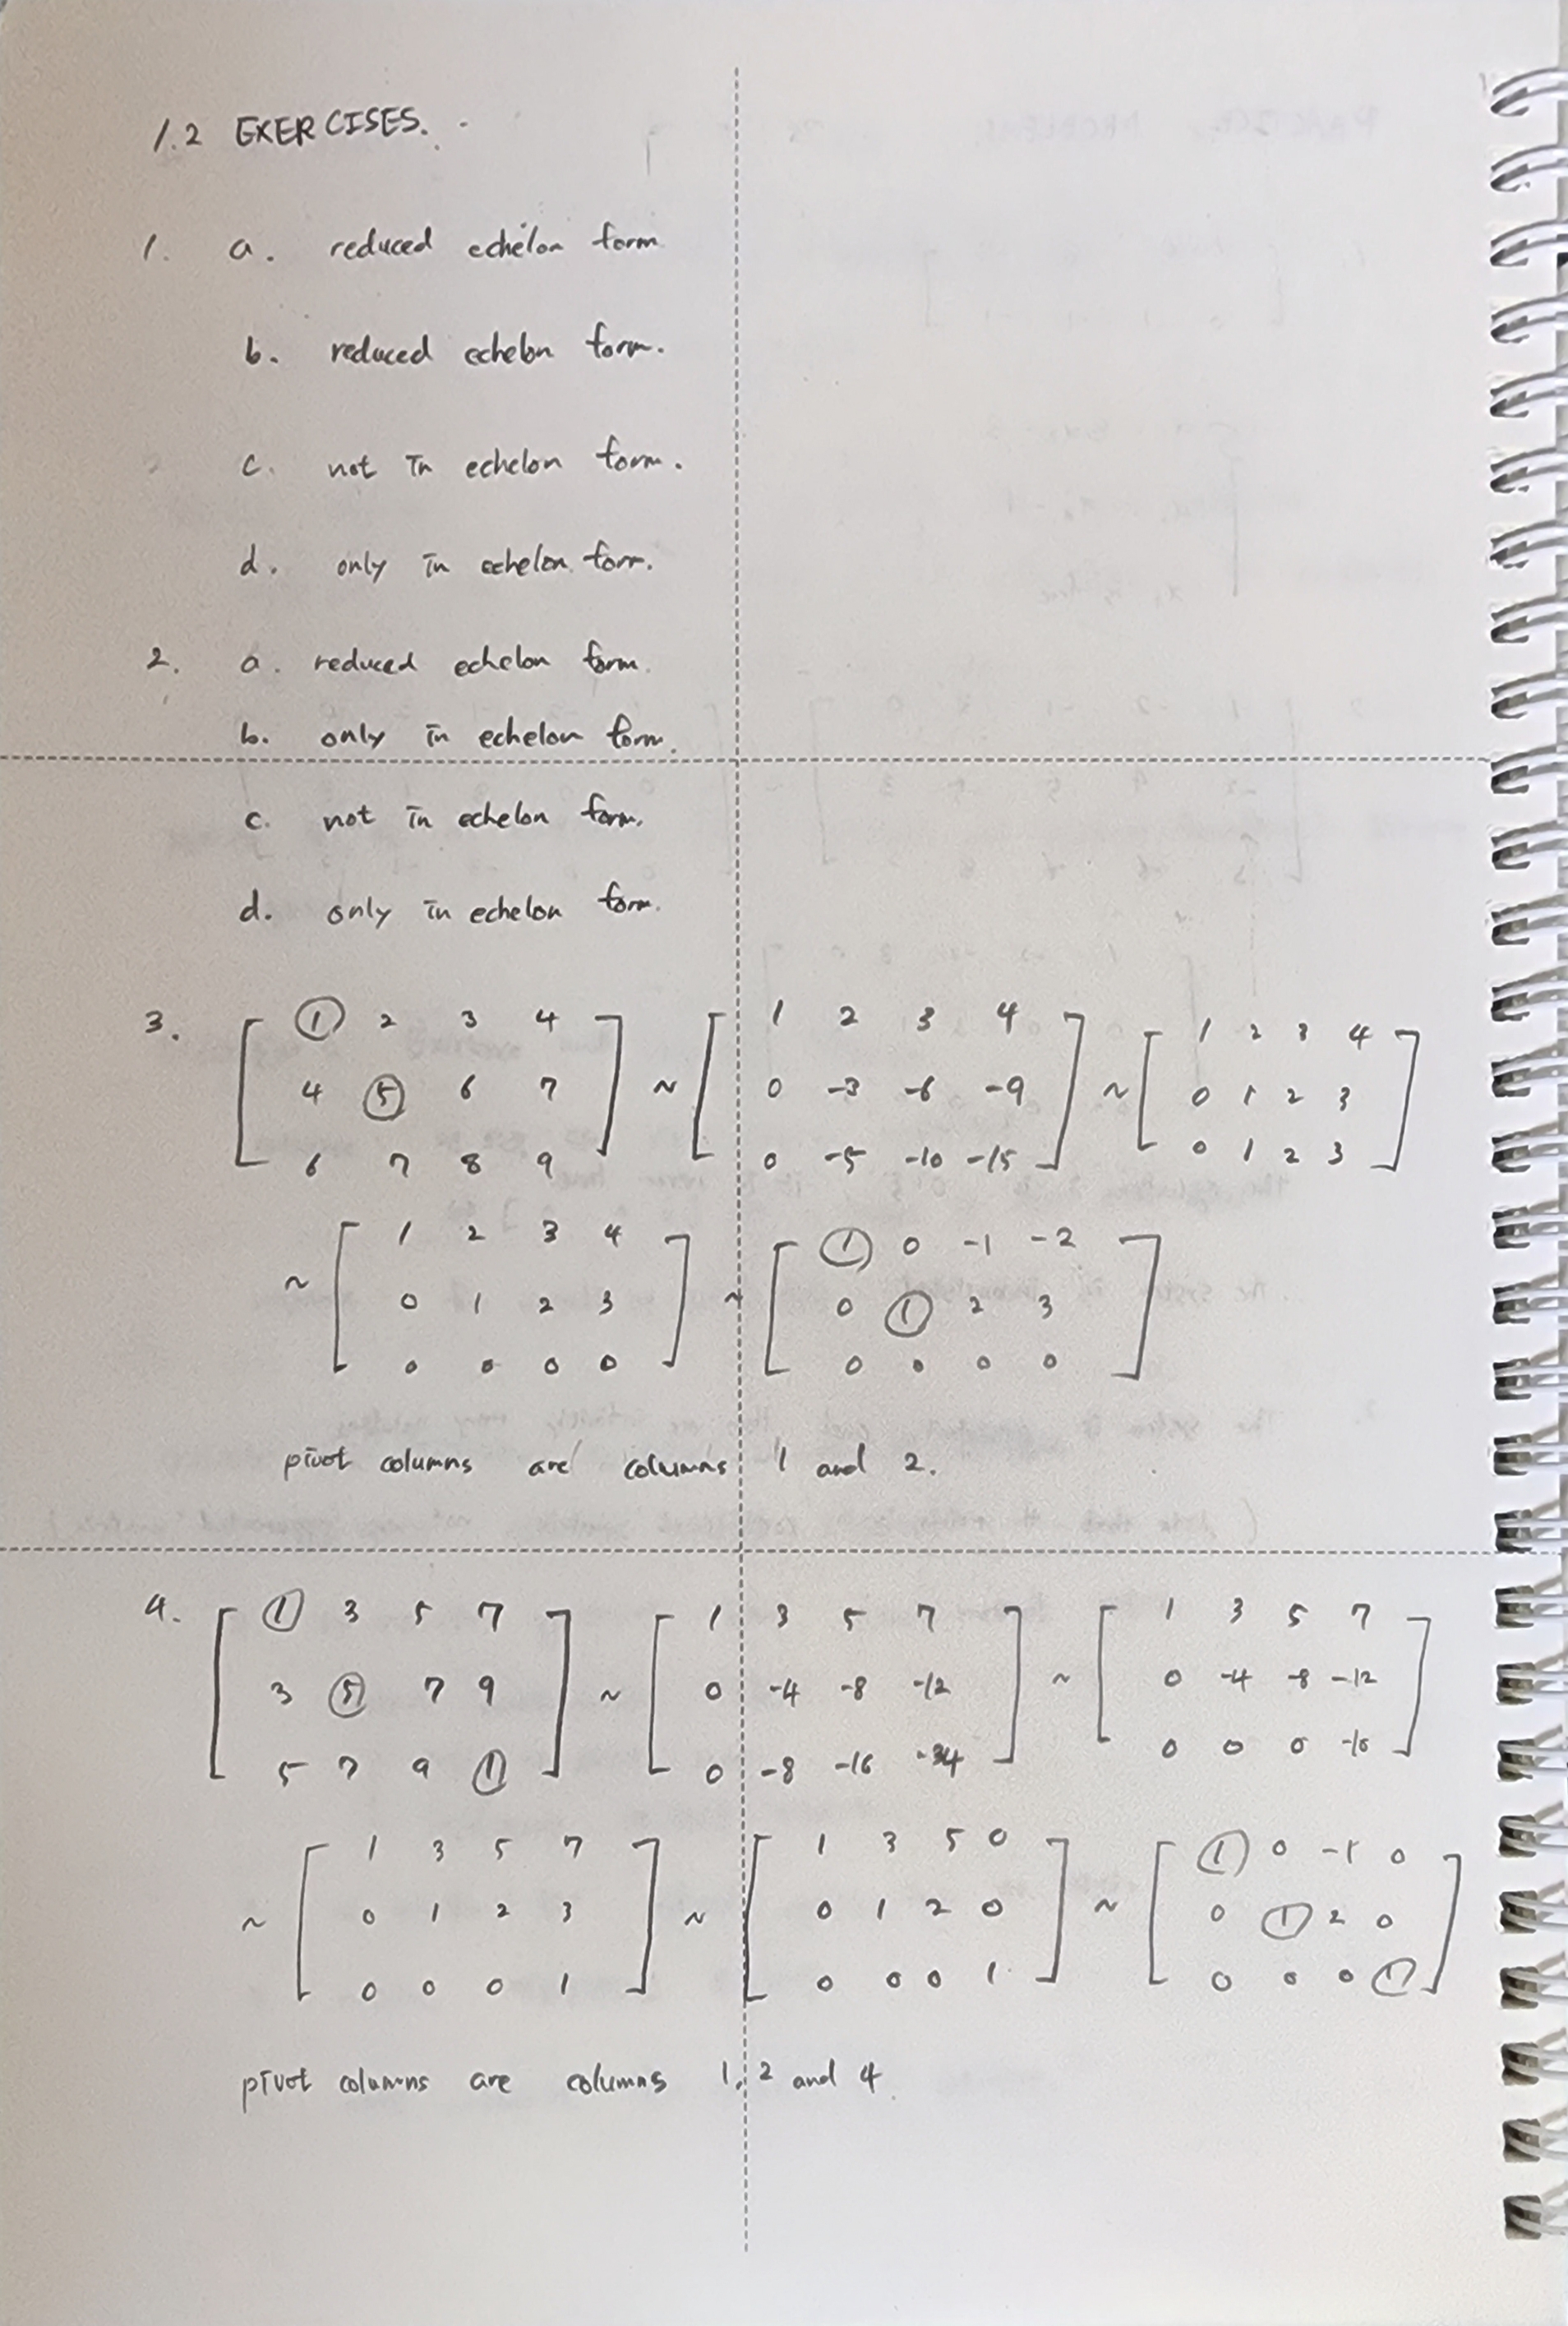 1.2 EXERCISES.
1. a. reduced echelon form
b. reduced echelon form.
c. not in echelon form.
d. only in echelon form.
2. a. reduced echelon form.
b. only in echelon form.
c. not in echelon form.
d. only in echelon form.
3. [ 1 2 3 4 ] [ 1 2 3 4 ] [ 1 2 3 4 ]
4 5 6 7 ~ 0 -3 -6 -9 ~ 0 1 2 3
6 7 8 9 0 -5 -10 -15 0 1 2 3
[ 1 2 3 4 ] [ 1 0 -1 -2 ]
~ 0 1 2 3 ~ 0 1 2 3
0 0 0 0 0 0 0 0
pivot columns are columns 1 and 2.
4. [ 1 3 5 7 ] [ 1 3 5 7 ] [ 1 3 5 7 ]
3 5 7 9 ~ 0 -4 -8 -12 ~ 0 -4 -8 -12
5 7 9 1 0 -8 -16 -34 0 0 0 -10
[ 1 3 5 7 ] [ 1 3 5 0 ] [ 1 0 -1 0 ]
~ 0 1 2 3 ~ 0 1 2 0 ~ 0 1 2 0
0 0 0 1 0 0 0 1 0 0 0 1
pivot columns are columns 1, 2 and 4.